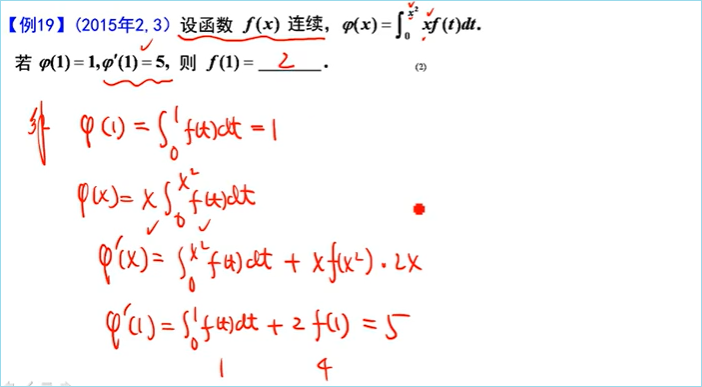 【例19】(2015年2,3) 设函数 f(x) 连续, φ(x)=∫₀^{x²} xf(t)dt.
若 φ(1)=1,φ′(1)=5, 则 f(1)= 2 .
(2)
解 φ(1)=∫₀¹ f(t)dt=1
φ(x)=x∫₀^{x²} f(t)dt
φ′(x)=∫₀^{x²} f(t)dt + xf(x²)·2x
φ′(1)=∫₀¹ f(t)dt + 2f(1) = 5
1 4